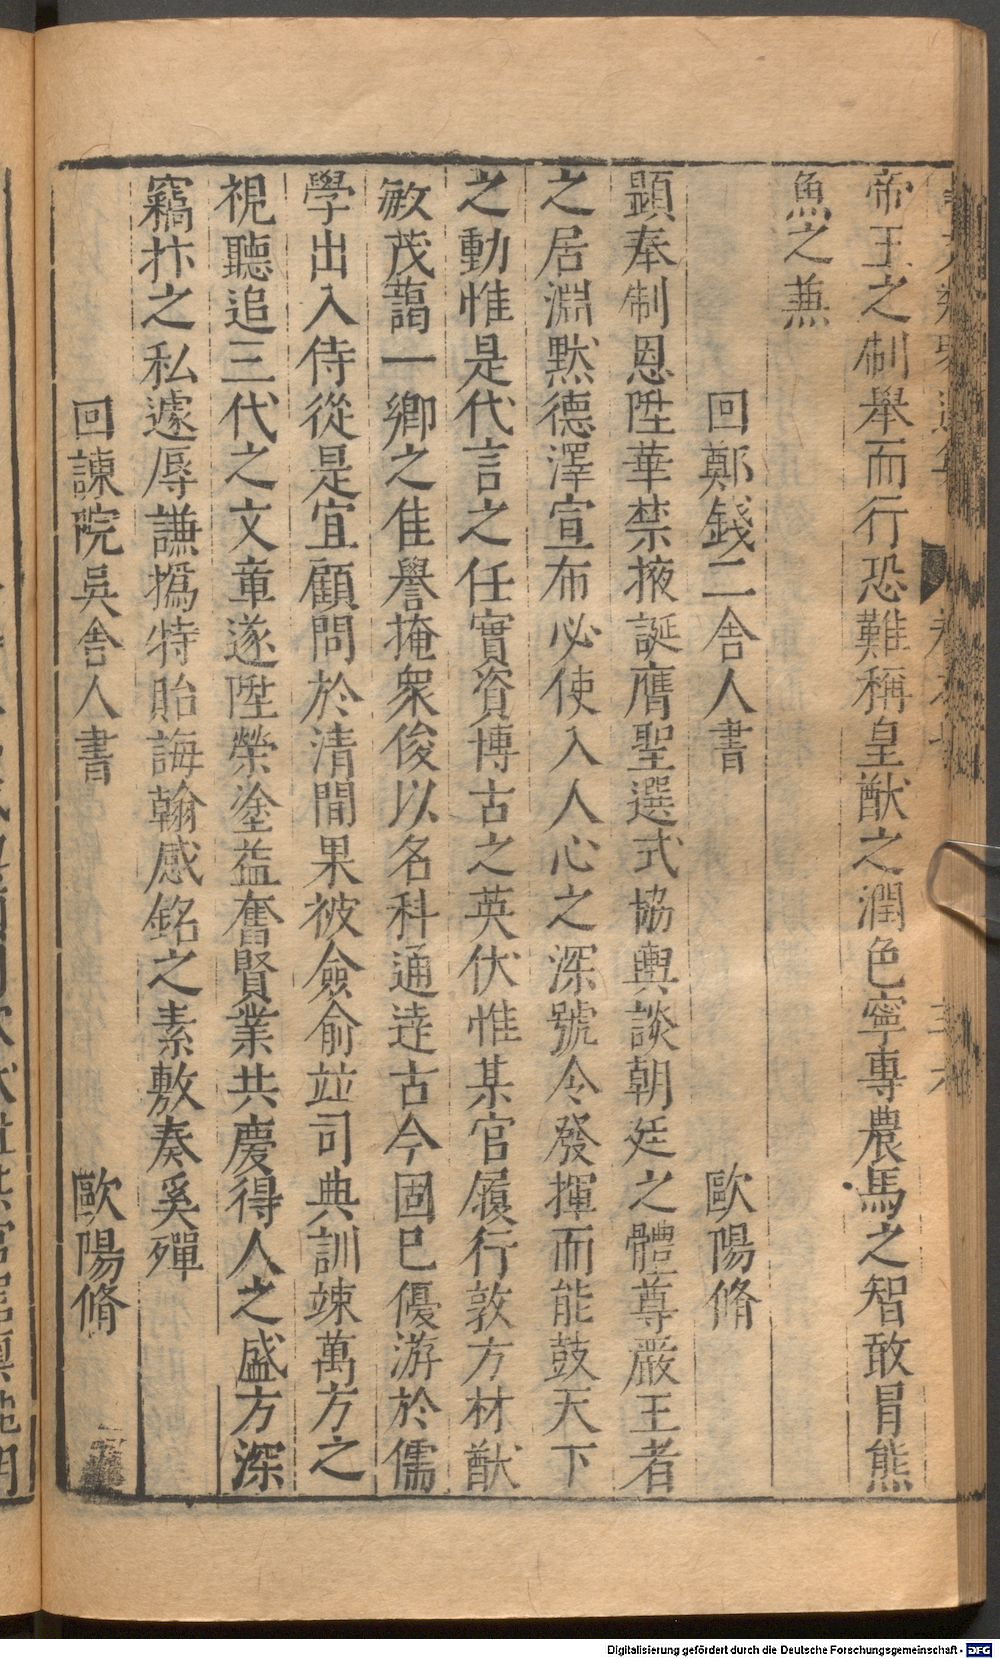 帝王之制舉而行恐難稱皇猷之潤色寧專農馬之智敢冒熊
魚之兼
回鄭錢二舍人書 歐陽脩
顯奉制恩陞華禁掖誕膺聖選式協輿談朝廷之體尊嚴王者
之居淵默德澤宣布必使入人心之深號令發揮而能鼓天下
之動惟是代言之任實資博古之英伏惟某官履行敦方材猷
敏茂藹一鄉之隹譽掩衆俊以名科通逹古今固已優游於儒
學出入侍從是宜顧問於清閒果被僉俞竝司典訓竦萬方之
視聽追三代之文章遂陞榮塗益奮賢業共慶得人之盛方深
竊抃之私遽辱謙撝特貽誨翰感銘之素敷奏奚殫
回諫院吳舍人書 歐陽脩
Digitalisierung gefördert durch die Deutsche Forschungsgemeinschaft - DFG